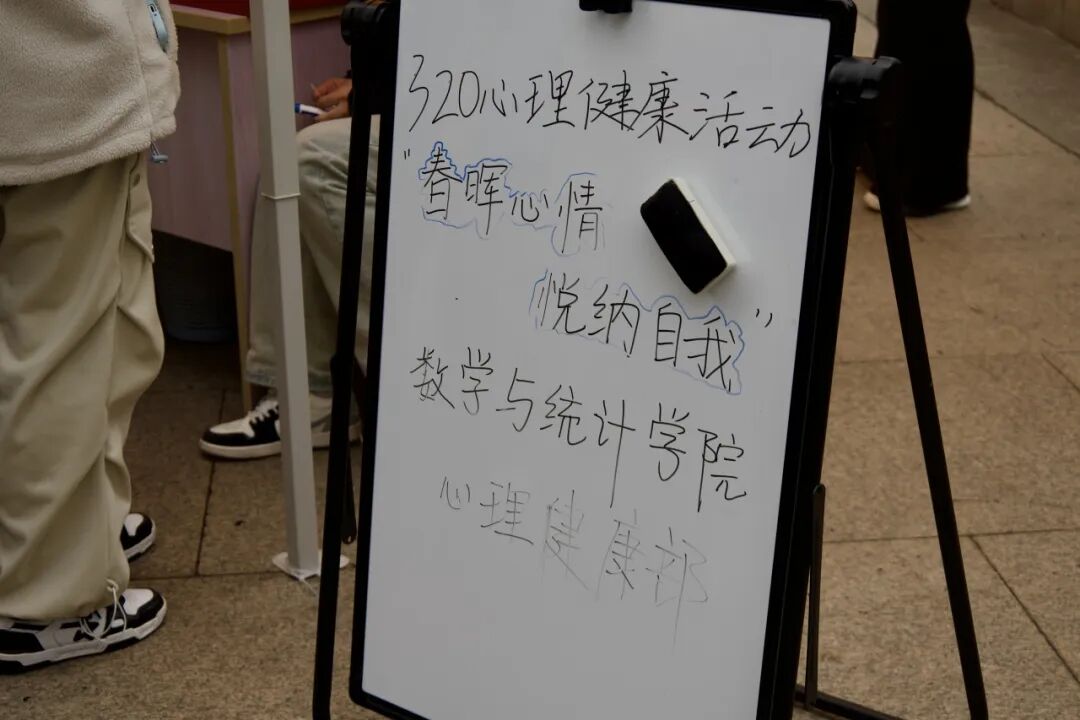 320心理健康活动
"春晖心情
悦纳自我"
数学与统计学院
心理健康部